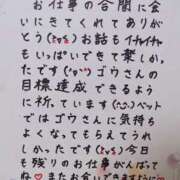 お仕事の合間に会
いにきてくれてありが
とう(   )お話もイチャイチャ
もいっぱいできて楽しかっ
たです(   )ゴウさんの
目標達成できるよう
に祈っています(   )ベット
ではゴウさんに気持ち
よくなってもらえてうれ
しかったです(   )今日
も残りのお仕事がんばって
ね♡またお会いできますように